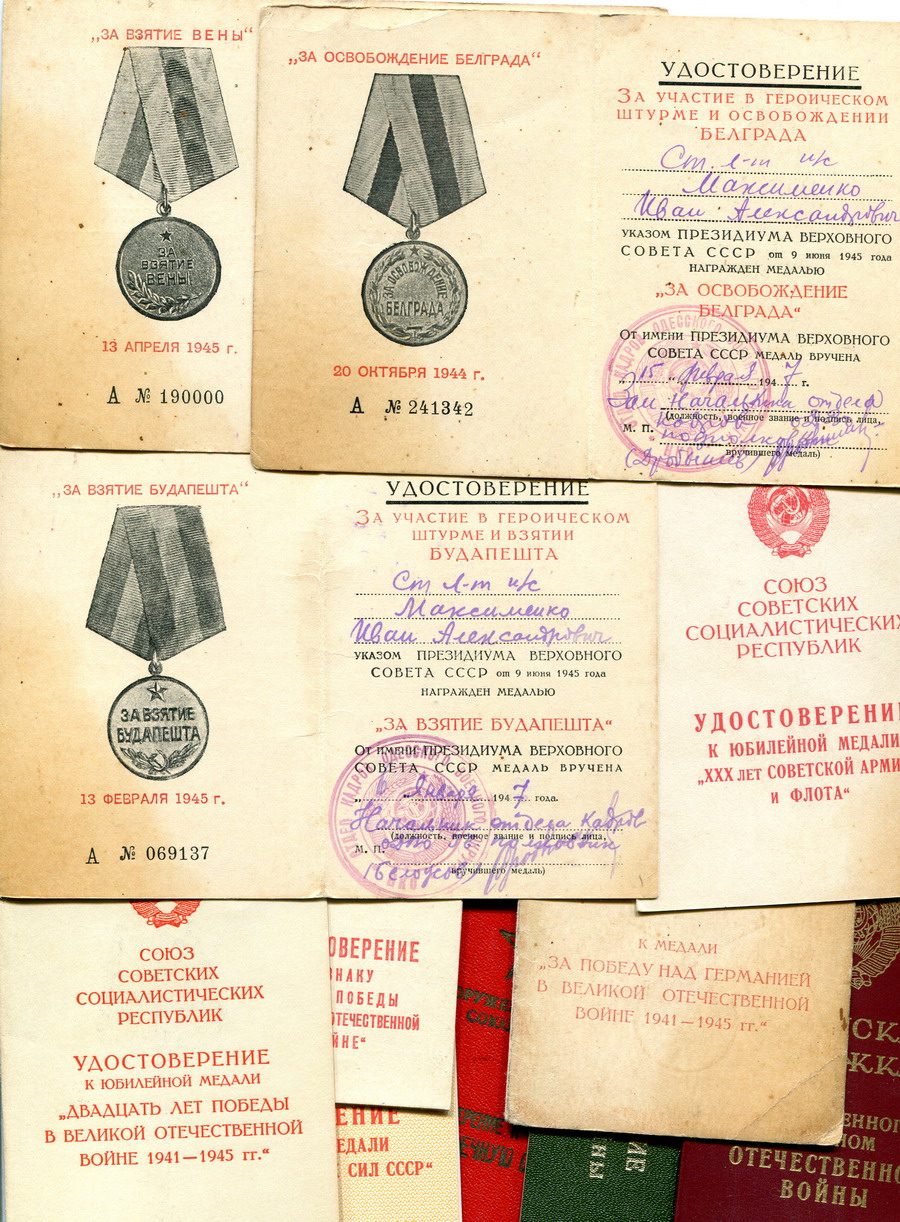 „ЗА ВЗЯТИЕ ВЕНЫ“
ЗА
ВЗЯТИЕ
ВЕНЫ
13 АПРЕЛЯ 1945 г.
А № 190000
„ЗА ОСВОБОЖДЕНИЕ БЕЛГРАДА“
ЗА ОСВОБОЖДЕНИЕ
БЕЛГРАДА
20 ОКТЯБРЯ 1944 г.
А № 241342
УДОСТОВЕРЕНИЕ
ЗА УЧАСТИЕ В ГЕРОИЧЕСКОМ
ШТУРМЕ И ОСВОБОЖДЕНИИ
БЕЛГРАДА
Ст. л-т и/с
Максименко
Иван Александрович
УКАЗОМ ПРЕЗИДИУМА ВЕРХОВНОГО
СОВЕТА СССР от 9 июня 1945 года
НАГРАЖДЕН МЕДАЛЬЮ
„ЗА ОСВОБОЖДЕНИЕ
БЕЛГРАДА“
От имени ПРЕЗИДИУМА ВЕРХОВНОГО
СОВЕТА СССР МЕДАЛЬ ВРУЧЕНА
„15“ февраля 1947 г.
Зам Начальника отдела
(должность, военное звание и подпись лица,
М. П.
вручившего медаль)
„ЗА ВЗЯТИЕ БУДАПЕШТА“
ЗА ВЗЯТИЕ
БУДАПЕШТА
13 ФЕВРАЛЯ 1945 г.
А № 069137
УДОСТОВЕРЕНИЕ
ЗА УЧАСТИЕ В ГЕРОИЧЕСКОМ
ШТУРМЕ И ВЗЯТИИ
БУДАПЕШТА
Ст л-т и/с
Максименко
Иван Александрович
УКАЗОМ ПРЕЗИДИУМА ВЕРХОВНОГО
СОВЕТА СССР от 9 июня 1945 года
НАГРАЖДЕН МЕДАЛЬЮ
„ЗА ВЗЯТИЕ БУДАПЕШТА“
От имени ПРЕЗИДИУМА ВЕРХОВНОГО
СОВЕТА СССР МЕДАЛЬ ВРУЧЕНА
Января 1947 года.
Начальник отдела Кадров
(должность, военное звание и подпись лица,
М. П.
вручившего медаль)
СОЮЗ
СОВЕТСКИХ
СОЦИАЛИСТИЧЕСКИХ
РЕСПУБЛИК
УДОСТОВЕРЕНИ
К ЮБИЛЕЙНОЙ МЕДАЛИ
„XXX ЛЕТ СОВЕТСКОЙ АРМИ
И ФЛОТА“
СОЮЗ
СОВЕТСКИХ
СОЦИАЛИСТИЧЕСКИХ
РЕСПУБЛИК
УДОСТОВЕРЕНИЕ
К ЮБИЛЕЙНОЙ МЕДАЛИ
„ДВАДЦАТЬ ЛЕТ ПОБЕДЫ
В ВЕЛИКОЙ ОТЕЧЕСТВЕННОЙ
ВОЙНЕ 1941—1945 гг.“
ОВЕРЕНИЕ
НАКУ
ПОБЕДЫ
ОТЕЧЕСТВЕННОЙ
НЕ“
ЕНИЕ
ЕДАЛИ
СИЛ СССР“
К МЕДАЛИ
„ЗА ПОБЕДУ НАД ГЕРМАНИЕЙ
В ВЕЛИКОЙ ОТЕЧЕСТВЕННОЙ
ВОЙНЕ 1941—1945 гг.“
ОТЕЧЕСТВЕННО
ВОЙНЫ